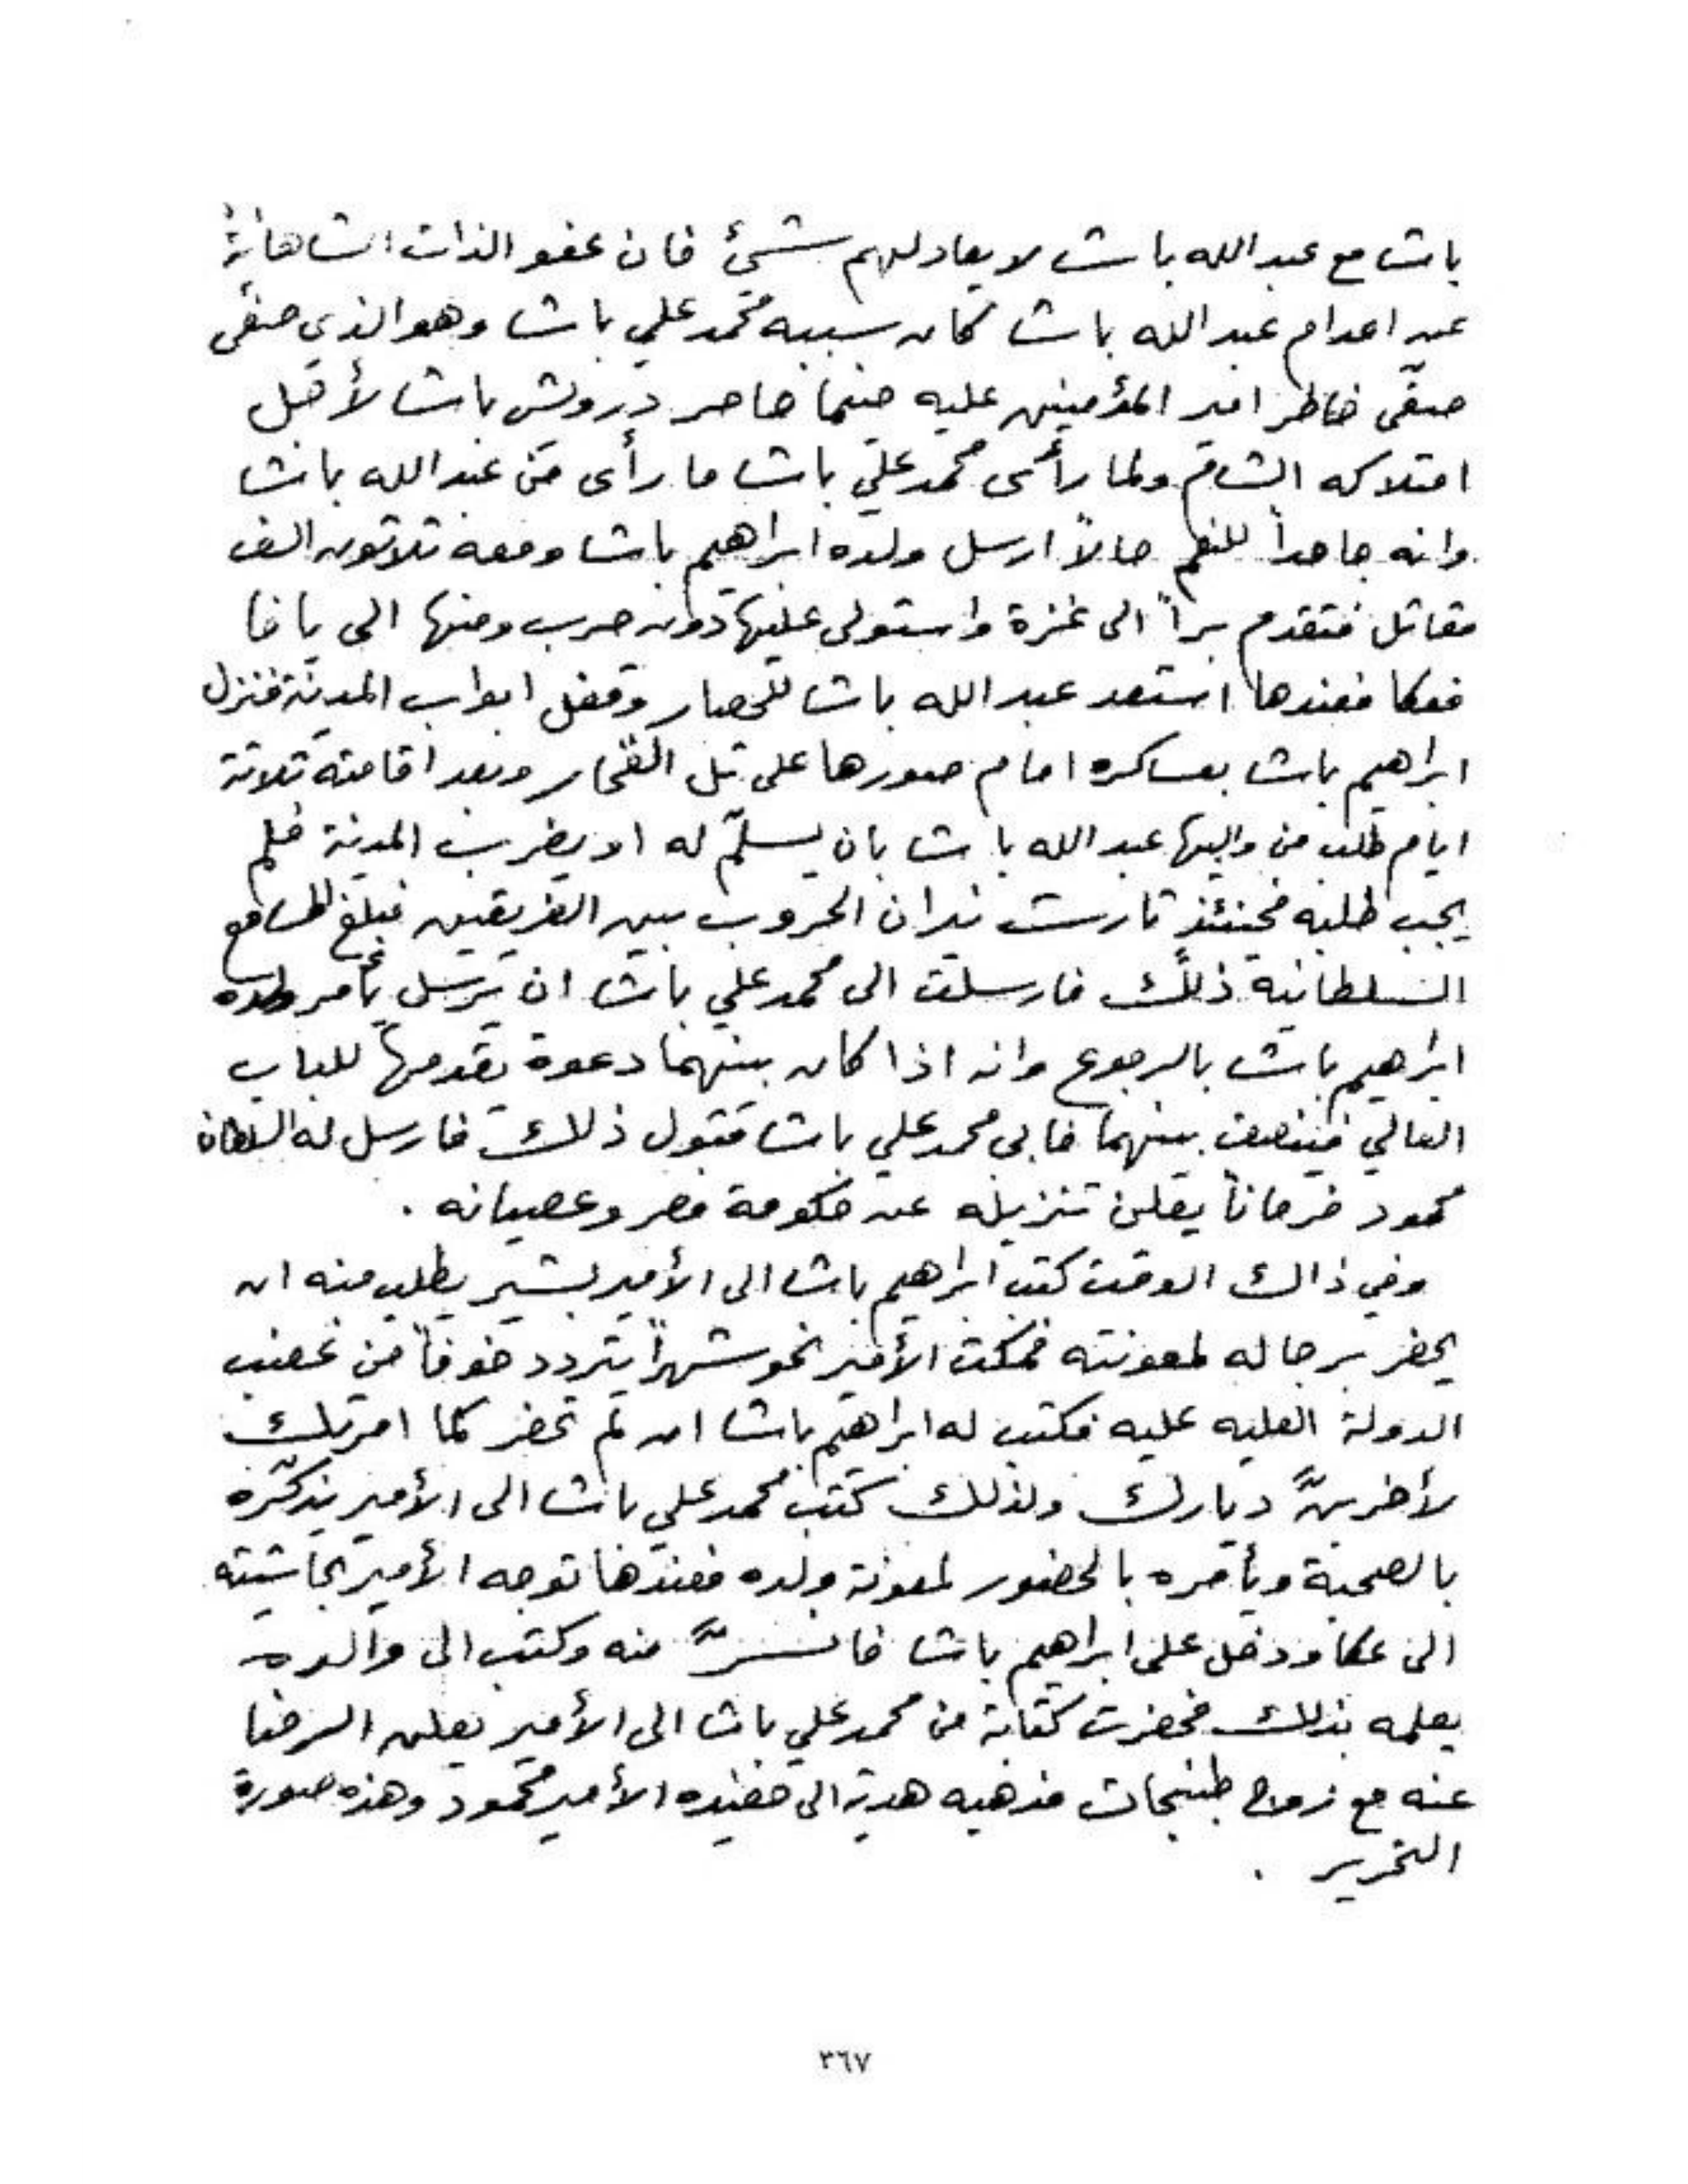 باشا مع عبدالله باشا لا يعادلهم شئ فان عفو الذات الشاهانية
عن اعدام عبدالله باشا كان سببه محمد علي باشا وهو الذي صفّى
صفّى خاطر امير المؤمنين عليه حينما حاصر درويش باشا لأجل
امتلاكه الشام ولما رأى محمد علي باشا ما رأى من عبدالله باشا
وانه جاحداً للنعم حالاً ارسل ولده ابراهيم باشا ومعه ثلاثون الف
مقاتل فتقدم براً الى غزة واستولى عليها دون حرب ومنها الى يافا
فعكا فعندها استعد عبدالله باشا للحصار وقفل ابواب المدينة فنزل
ابراهيم باشا بعساكره امام صورها على تل الفخّار وبعد اقامته ثلاثة
ايام طلب من واليها عبدالله باشا بان يسلّم له او يضرب المدينة فلم
يجب طلبه فحينئذٍ ثارت نيران الحروب بين الفريقين فبلغ المسامع
السلطانية ذلك فارسلت الى محمد علي باشا ان يرسل يأمر ولده
ابراهيم باشا بالرجوع وانه اذا كان بينهما دعوة يقدمها للباب
العالي فينصف بينهما فابى محمد علي باشا قبول ذلك فارسل له السلطان
محمود فرماناً يعلن تنزيله عن حكومة مصر وعصيانه .
وفي ذاك الوقت كتب ابراهيم باشا الى الأمير بشير يطلب منه ان
يحضر برجاله لمعونته فمكث الأمير نحو شهراً يتردد خوفاً من غضب
الدولة العليه عليه فكتب له ابراهيم باشا ان لم تحضر كما امرتك
لأخربنَّ ديارك ولذلك كتب محمد علي باشا الى الأمير يذكّره
بالصحبة ويأمره بالحضور لمعونة ولده فعندها توجه الأمير بحاشيته
الى عكا ودخل على ابراهيم باشا فانسرَّ منه وكتب الى والده
يعلمه بذلك فحضرت كتابة من محمد علي باشا الى الأمير يعلن الرضا
عنه مع زواج طبنجات مذهبه هدية الى حفيده الأمير محمود وهذه صورة
التحرير .
٣٦٧